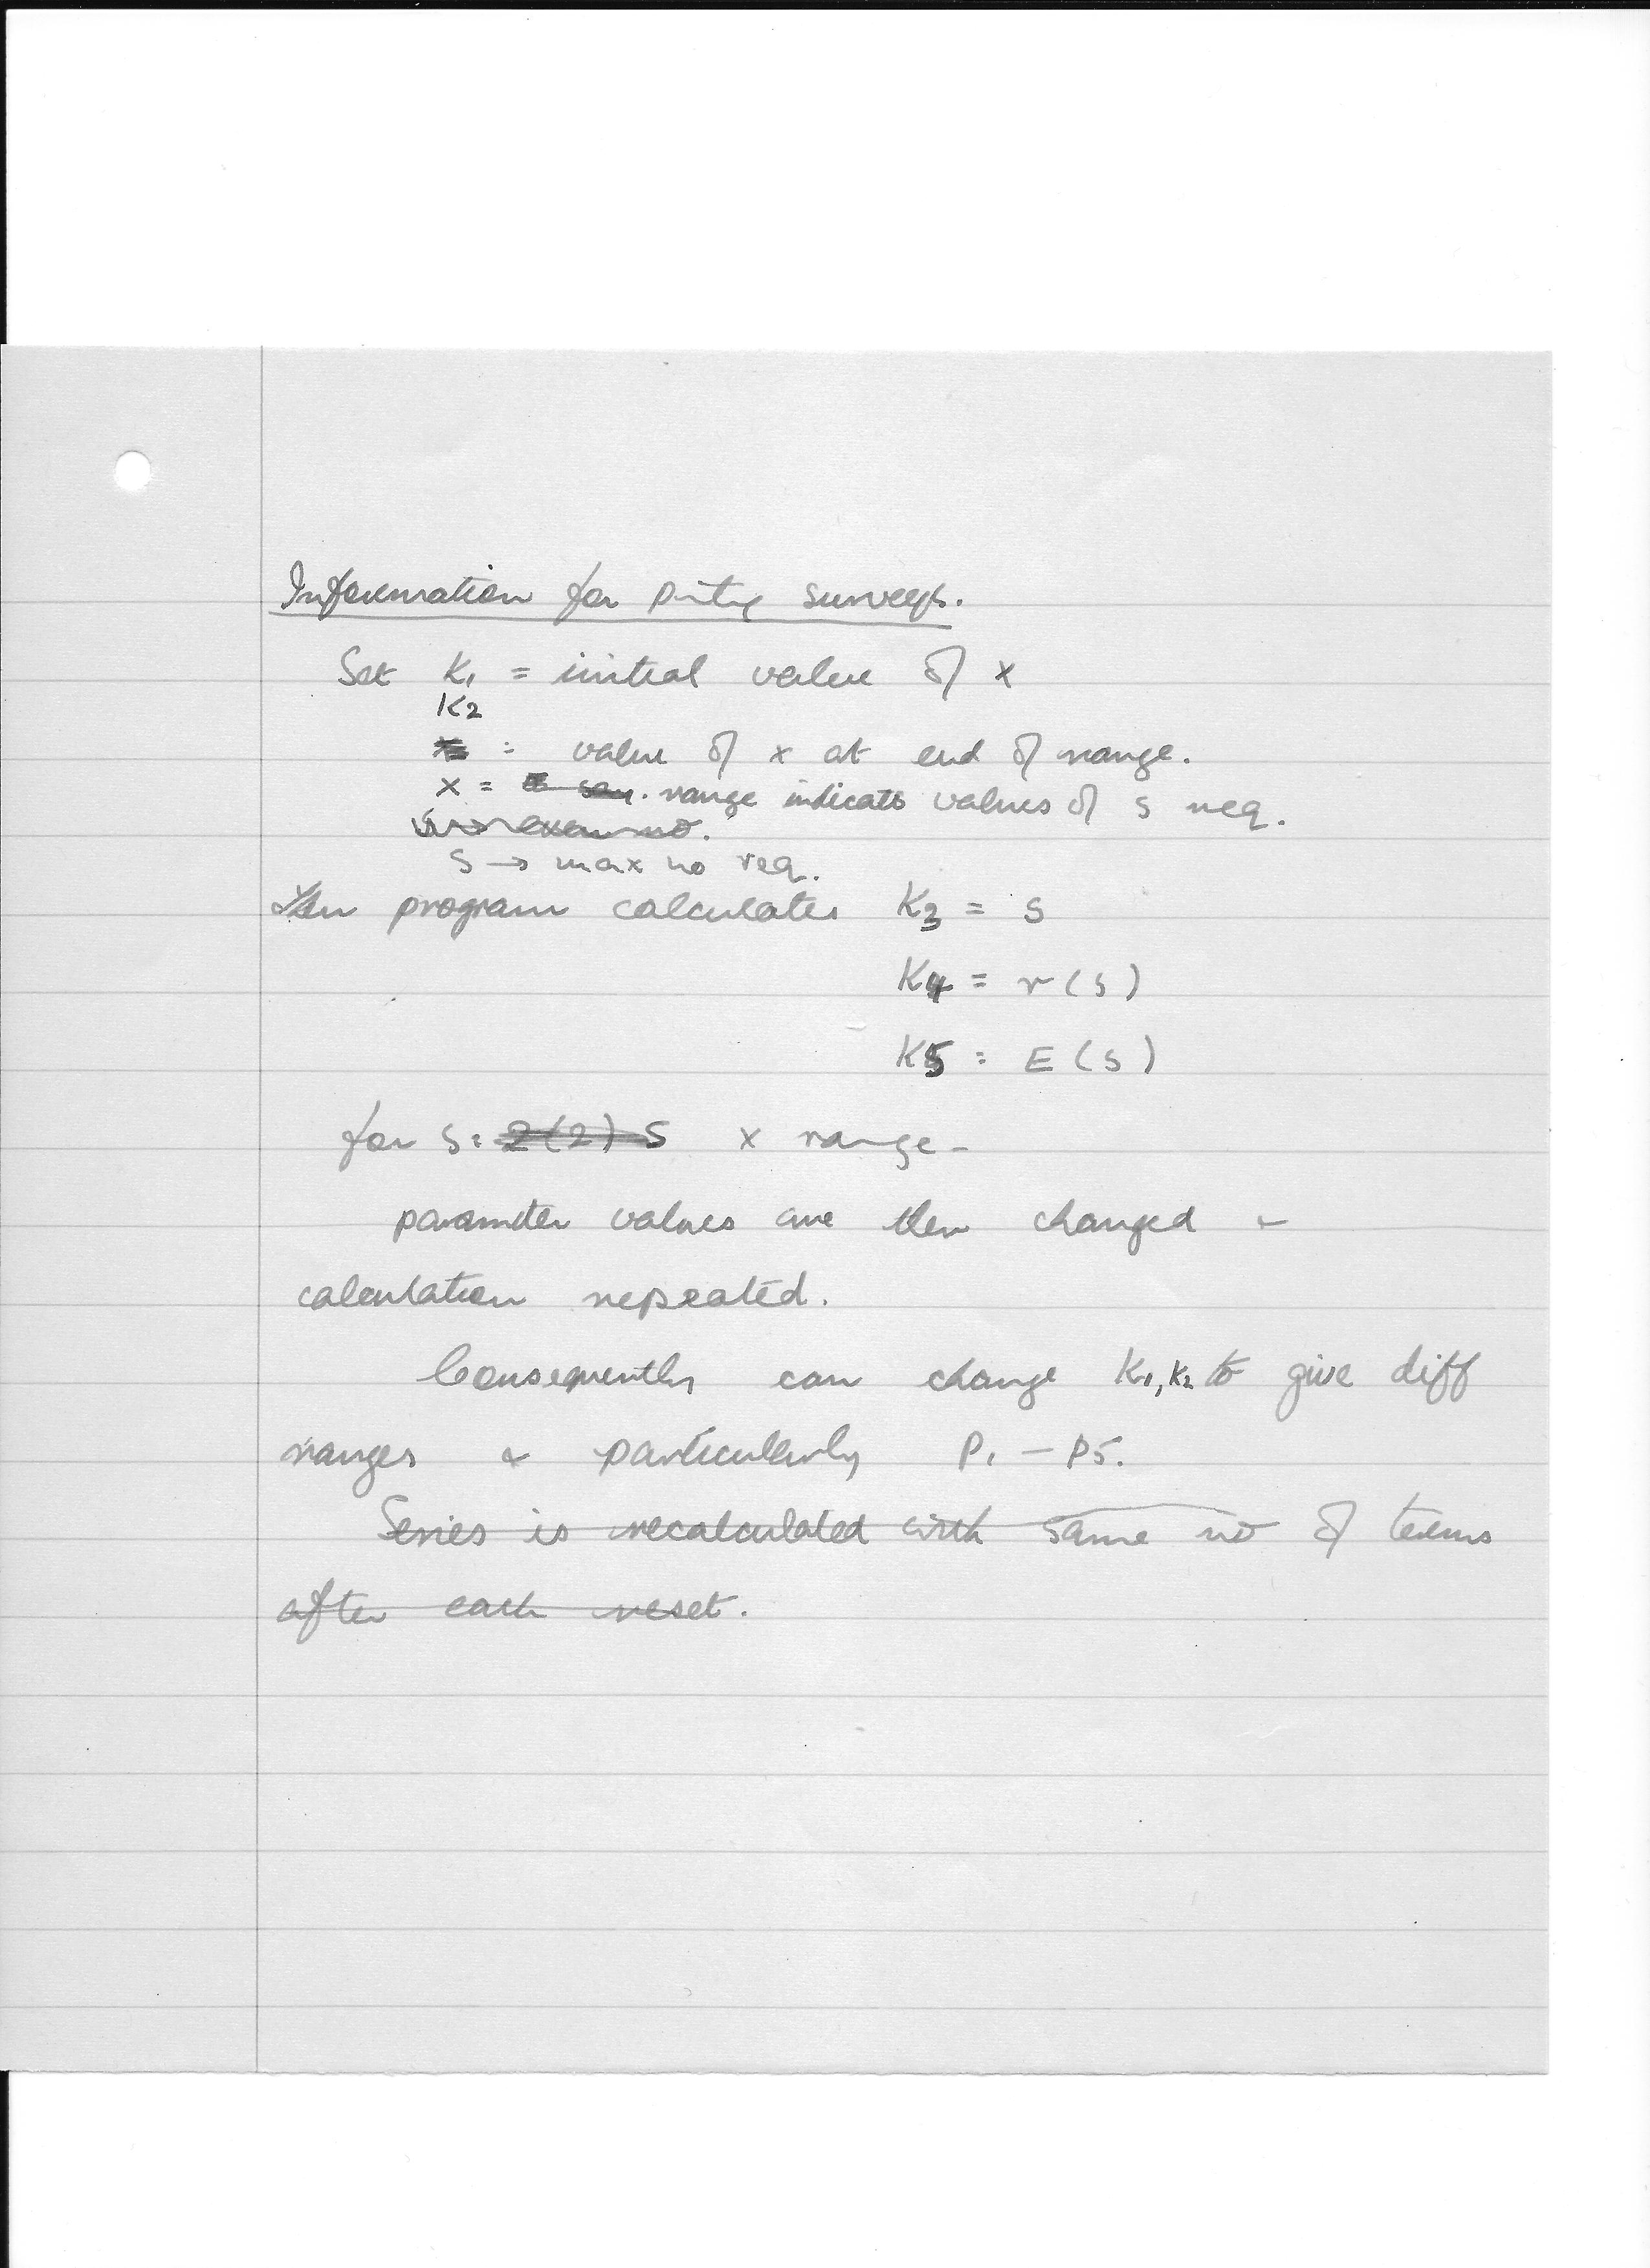 Information for surveys.
Set K1 = initial value of x
K2
= value of x at end of range.
x = range indicate values of s req.
s → max no req.
program calculates K3 = s
K4 = r(s)
K5 = E(s)
for s = 2(2) s x range
parameter values are then changed &
calculation repeated.
Consequently can change K1, K2 to give diff
ranges & particularly P1 - P5.
Series is recalculated with same no of terms
after each reset.